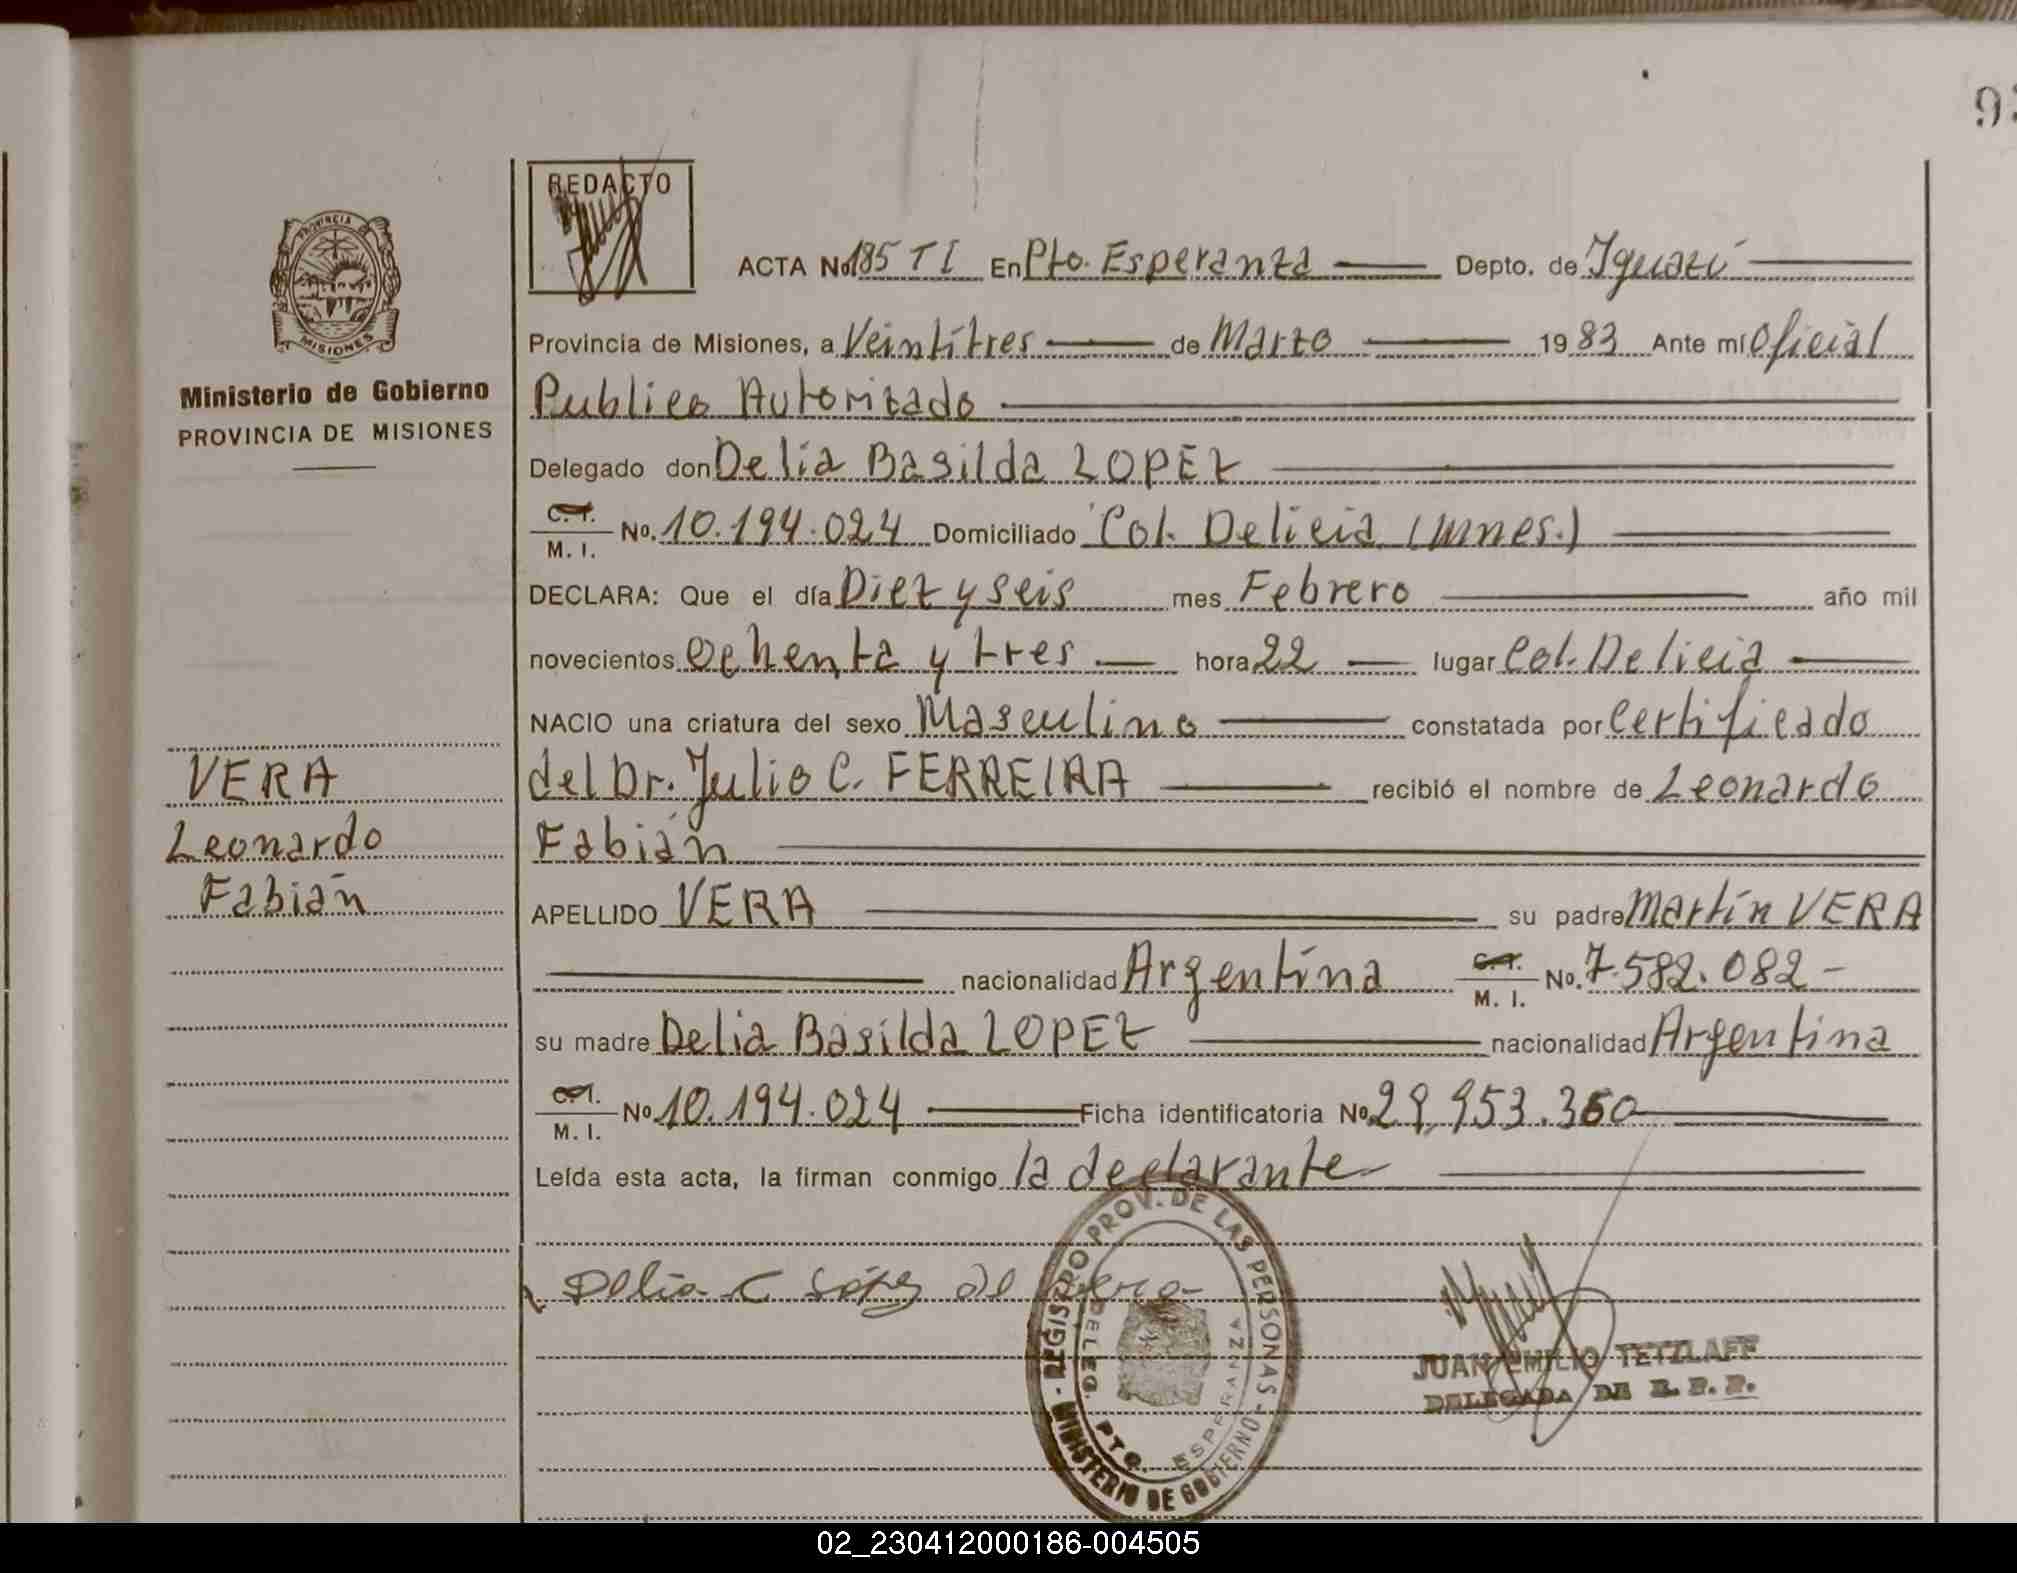 93
REDACTO
PROVINCIA
MISIONES
Ministerio de Gobierno
PROVINCIA DE MISIONES
ACTA No 185 T I En Pto. Esperanza Depto. de Iguazú
Provincia de Misiones, a Veintitres de Marzo 1983 Ante mí Oficial
Publico Autorizado
Delegado don Delia Basilda LOPEZ
C. I. M. I. No. 10.194.024 Domiciliado Col. Delicia (Mnes.)
DECLARA: Que el día Diez y seis mes Febrero año mil
novecientos Ochenta y tres hora 22 lugar Col. Delicia
NACIO una criatura del sexo Masculino constatada por Certificado
del Dr. Julio C. FERREIRA recibió el nombre de Leonardo
Fabián
APELLIDO VERA su padre Martín VERA
nacionalidad Argentina C. I. M. I. No. 7.582.082 -
su madre Delia Basilda LOPEZ nacionalidad Argentina
C. I. M. I. No 10.194.024 Ficha identificatoria No 29.953.360
Leída esta acta, la firman conmigo la declarante
VERA
Leonardo
Fabián
Delia C López de Vera
REGISTRO PROV. DE LAS PERSONAS - MINISTERIO DE GOBIERNO -
DELEG. PTO. ESPERANZA
JUAN EMILIO TETZLAFF
DELEGADA DE R. P. P.
02_230412000186-004505